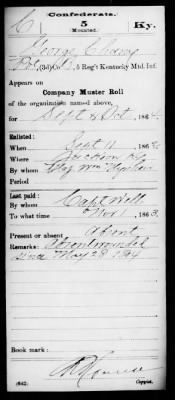 Confederate.
C 5 Ky.
Mounted.
George Cherry
Co. D, 5 Reg't Kentucky Mtd. Inf.
Appears on
Company Muster Roll
of the organization named above,
for Sept & Oct, 1864.
Enlisted:
When Sept 11, 186
Where
By whom Wm
Period
Last paid:
By whom Capt Well
To what time Nov 1, 1863.
Present or absent Absent
Remarks: Absent wounded
since May 28 1864
Book mark:
(642) Copyist.